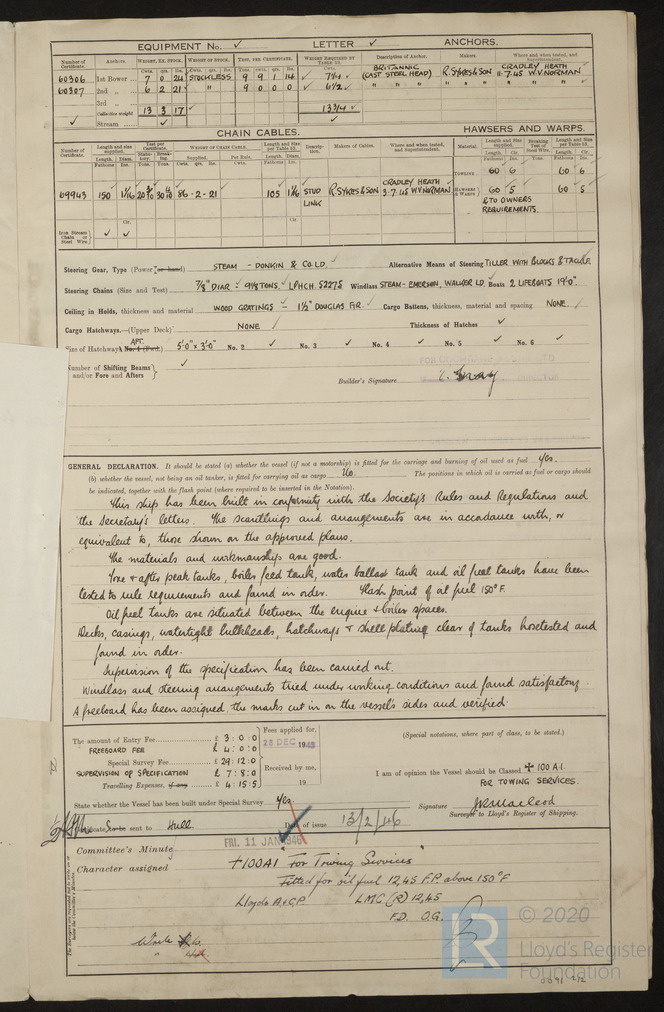 EQUIPMENT No. ✓ LETTER ✓ ANCHORS.
Number of Certificate. Anchors. WEIGHT, EX. STOCK. WEIGHT OF STOCK. TEST, PER CERTIFICATE. WEIGHT REQUIRED BY TABLE 53. Description of Anchor. Makers. Where and when tested, and Superintendent.
Cwts. qrs. lbs. Cwts. qrs. lbs.
60306 1st Bower 7 0 24 STOCKLESS 9 9 1 14 7¼ BRITANNIC (CAST STEEL HEAD) R. SYKES & SON CRADLEY HEATH 11.7.45 W.V. NORMAN
60307 2nd „ 6 2 21 „ 9 0 0 0 6½ „ „ „ „ „ „
3rd „
(Collective weight) 13 3 17 13¾
✓ Stream
CHAIN CABLES. HAWSERS AND WARPS.
Number of Certificate. Length and size supplied. Test per Certificate. WEIGHT OF CHAIN CABLE. Length and size per Table 53. Description. Makers of Cables. Where and when tested, and Superintendent. Material. Length and Size supplied. Breaking Test of Steel Wire. Length and Size per Table 53.
Length. Diam. Supplied. Per Rule. Length. Diam.
TOWLINE 60 6 60 6
69943 150 1 1/16 86-2-21 105 1 1/16 STUD LINK R. SYKES & SON CRADLEY HEATH 3.7.45 W.V. NORMAN HAWSERS & WARPS 60 5 60 5
& TO OWNERS REQUIREMENTS.
Iron Stream Chain or Steel Wire ✓ ✓
Steering Gear, Type (Power or hand) STEAM - DONKIN & CO. LD. Alternative Means of Steering TILLER WITH BLOCKS & TACKLE
Steering Chains (Size and Test) 7/8" DIAR - 9⅛ TONS. LPHCH. 52275 Windlass STEAM - EMERSON, WALKER LD. Boats 2 LIFEBOATS 19'0".
Ceiling in Holds, thickness and material WOOD GRATINGS - 1½" DOUGLAS FIR. Cargo Battens, thickness, material and spacing NONE.
Cargo Hatchways.—(Upper Deck) NONE Thickness of Hatches ✓
Size of Hatchways No. 1 (Fwd.) AFT. 5'0" × 3'0" No. 2 ✓ No. 3 ✓ No. 4 ✓ No. 5 ✓ No. 6 ✓
Number of Shifting Beams and/or Fore and Afters ✓
Builder's Signature
GENERAL DECLARATION. It should be stated (a) whether the vessel (if not a motorship) is fitted for the carriage and burning of oil used as fuel Yes.
(b) whether the vessel, not being an oil tanker, is fitted for carrying oil as cargo No. The positions in which oil is carried as fuel or cargo should
be indicated, together with the flash point (where required to be inserted in the Notation).
This ship has been built in conformity with the Society's Rules and Regulations and
the Secretary's letters. The scantlings and arrangements are in accordance with, or
equivalent to, those shown on the approved plans.
The materials and workmanship are good.
Fore & after peak tanks, boiler feed tank, water ballast tank and oil fuel tanks have been
tested to rule requirements and found in order. Flash point of oil fuel 150°F.
Oil fuel tanks are situated between the engine & boiler spaces.
Decks, casings, watertight bulkheads, hatchways & shell plating clear of tanks hosetested and
found in order.
Supervision of the specification has been carried out.
Windlass and steering arrangements tried under working conditions and found satisfactory.
A freeboard has been assigned, the marks cut in on the vessel's sides and verified.
The amount of Entry Fee £ 3 : 0 : 0 Fees applied for,
FREEBOARD FEE £ 4 : 0 : 0 28 DEC 1945
Special Survey Fee £ 29 : 12 : 0
SUPERVISION OF SPECIFICATION £ 7 : 8 : 0 Received by me,
Travelling Expenses, if any £ 4 : 15 : 5 19
(Special notations, where part of class, to be stated.)
I am of opinion the Vessel should be Classed ✠ 100 A1.
FOR TOWING SERVICES.
State whether the Vessel has been built under Special Survey Yes.
Signature J R Macleod
Surveyor to Lloyd's Register of Shipping.
Certificate to be sent to Hull. Date of issue 13/2/46
Committee's Minute FRI. 11 JAN 1946
Character assigned +100A1 "For Towing Services"
Fitted for oil fuel 12,45 F.P. above 150°F
Lloyds A&CP. LMC (R) 12,45
F.D. O.G.
© 2020
Lloyd's Register
Foundation
0091-272